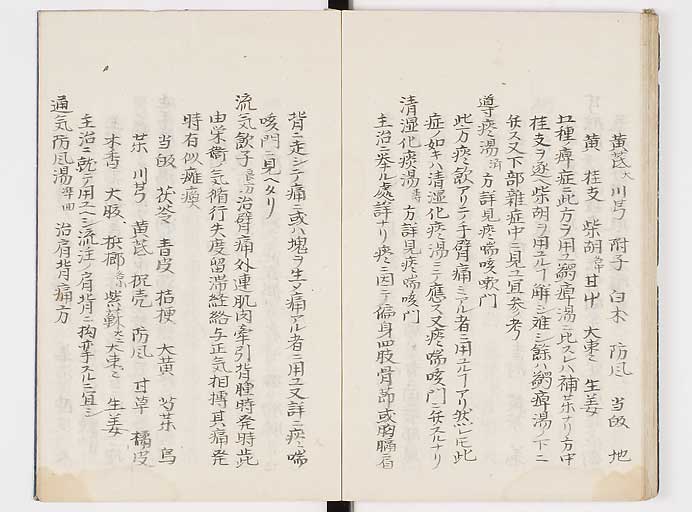 黄芪大 川芎 附子 白朮 防風 当皈 地
黄 桂支 柴胡 甘中 大棗 生姜
五種ノ痺症ニ此方ヲ用ユ蠲痺湯ニ比スレハ補薬ナリ方中
桂支ヲ逐ヘ柴胡ヲ用ユル 解シ難シ餘ハ蠲痺湯ノ下ニ
弁ス又下部雜症中ニ見ユ宜参考
導痰湯済 方詳見痰喘咳嗽門
此方痰飲アリテ手臂痛ミアル者ニ用ユル アリ然 此
症ノ如キハ清湿化痰湯ニ應ス又痰喘咳門ニ弁スルナリ
清湿化痰湯 方詳見痰喘咳門
主治ニ挙ル處詳ナリ痰ニ因テ偏身四肢骨節或胸膈
背ニ走シテ痛ニ或ハ塊ヲ生シ痛アル者ニ用ユ又詳ニ痰喘
咳門ニ見ヘタリ
流気飲子 治臂痛外連肌肉牽引背膂時発時止
由栄衛ノ気循行失度留滞経絡与正気相搏其痛発
時有似癱瘓
当皈 茯苓 青皮 桔梗 大黄 芍薬 烏
薬 川芎 黄芪 枳売 防風 甘草 橘皮
木香 大腹 梹榔 紫蘇 大棗 生姜
主治ニ就テ用ユヘシ流注ノ肩背ニ拘挛スルニ宜シ
通気防風湯準四 治肩背痛方